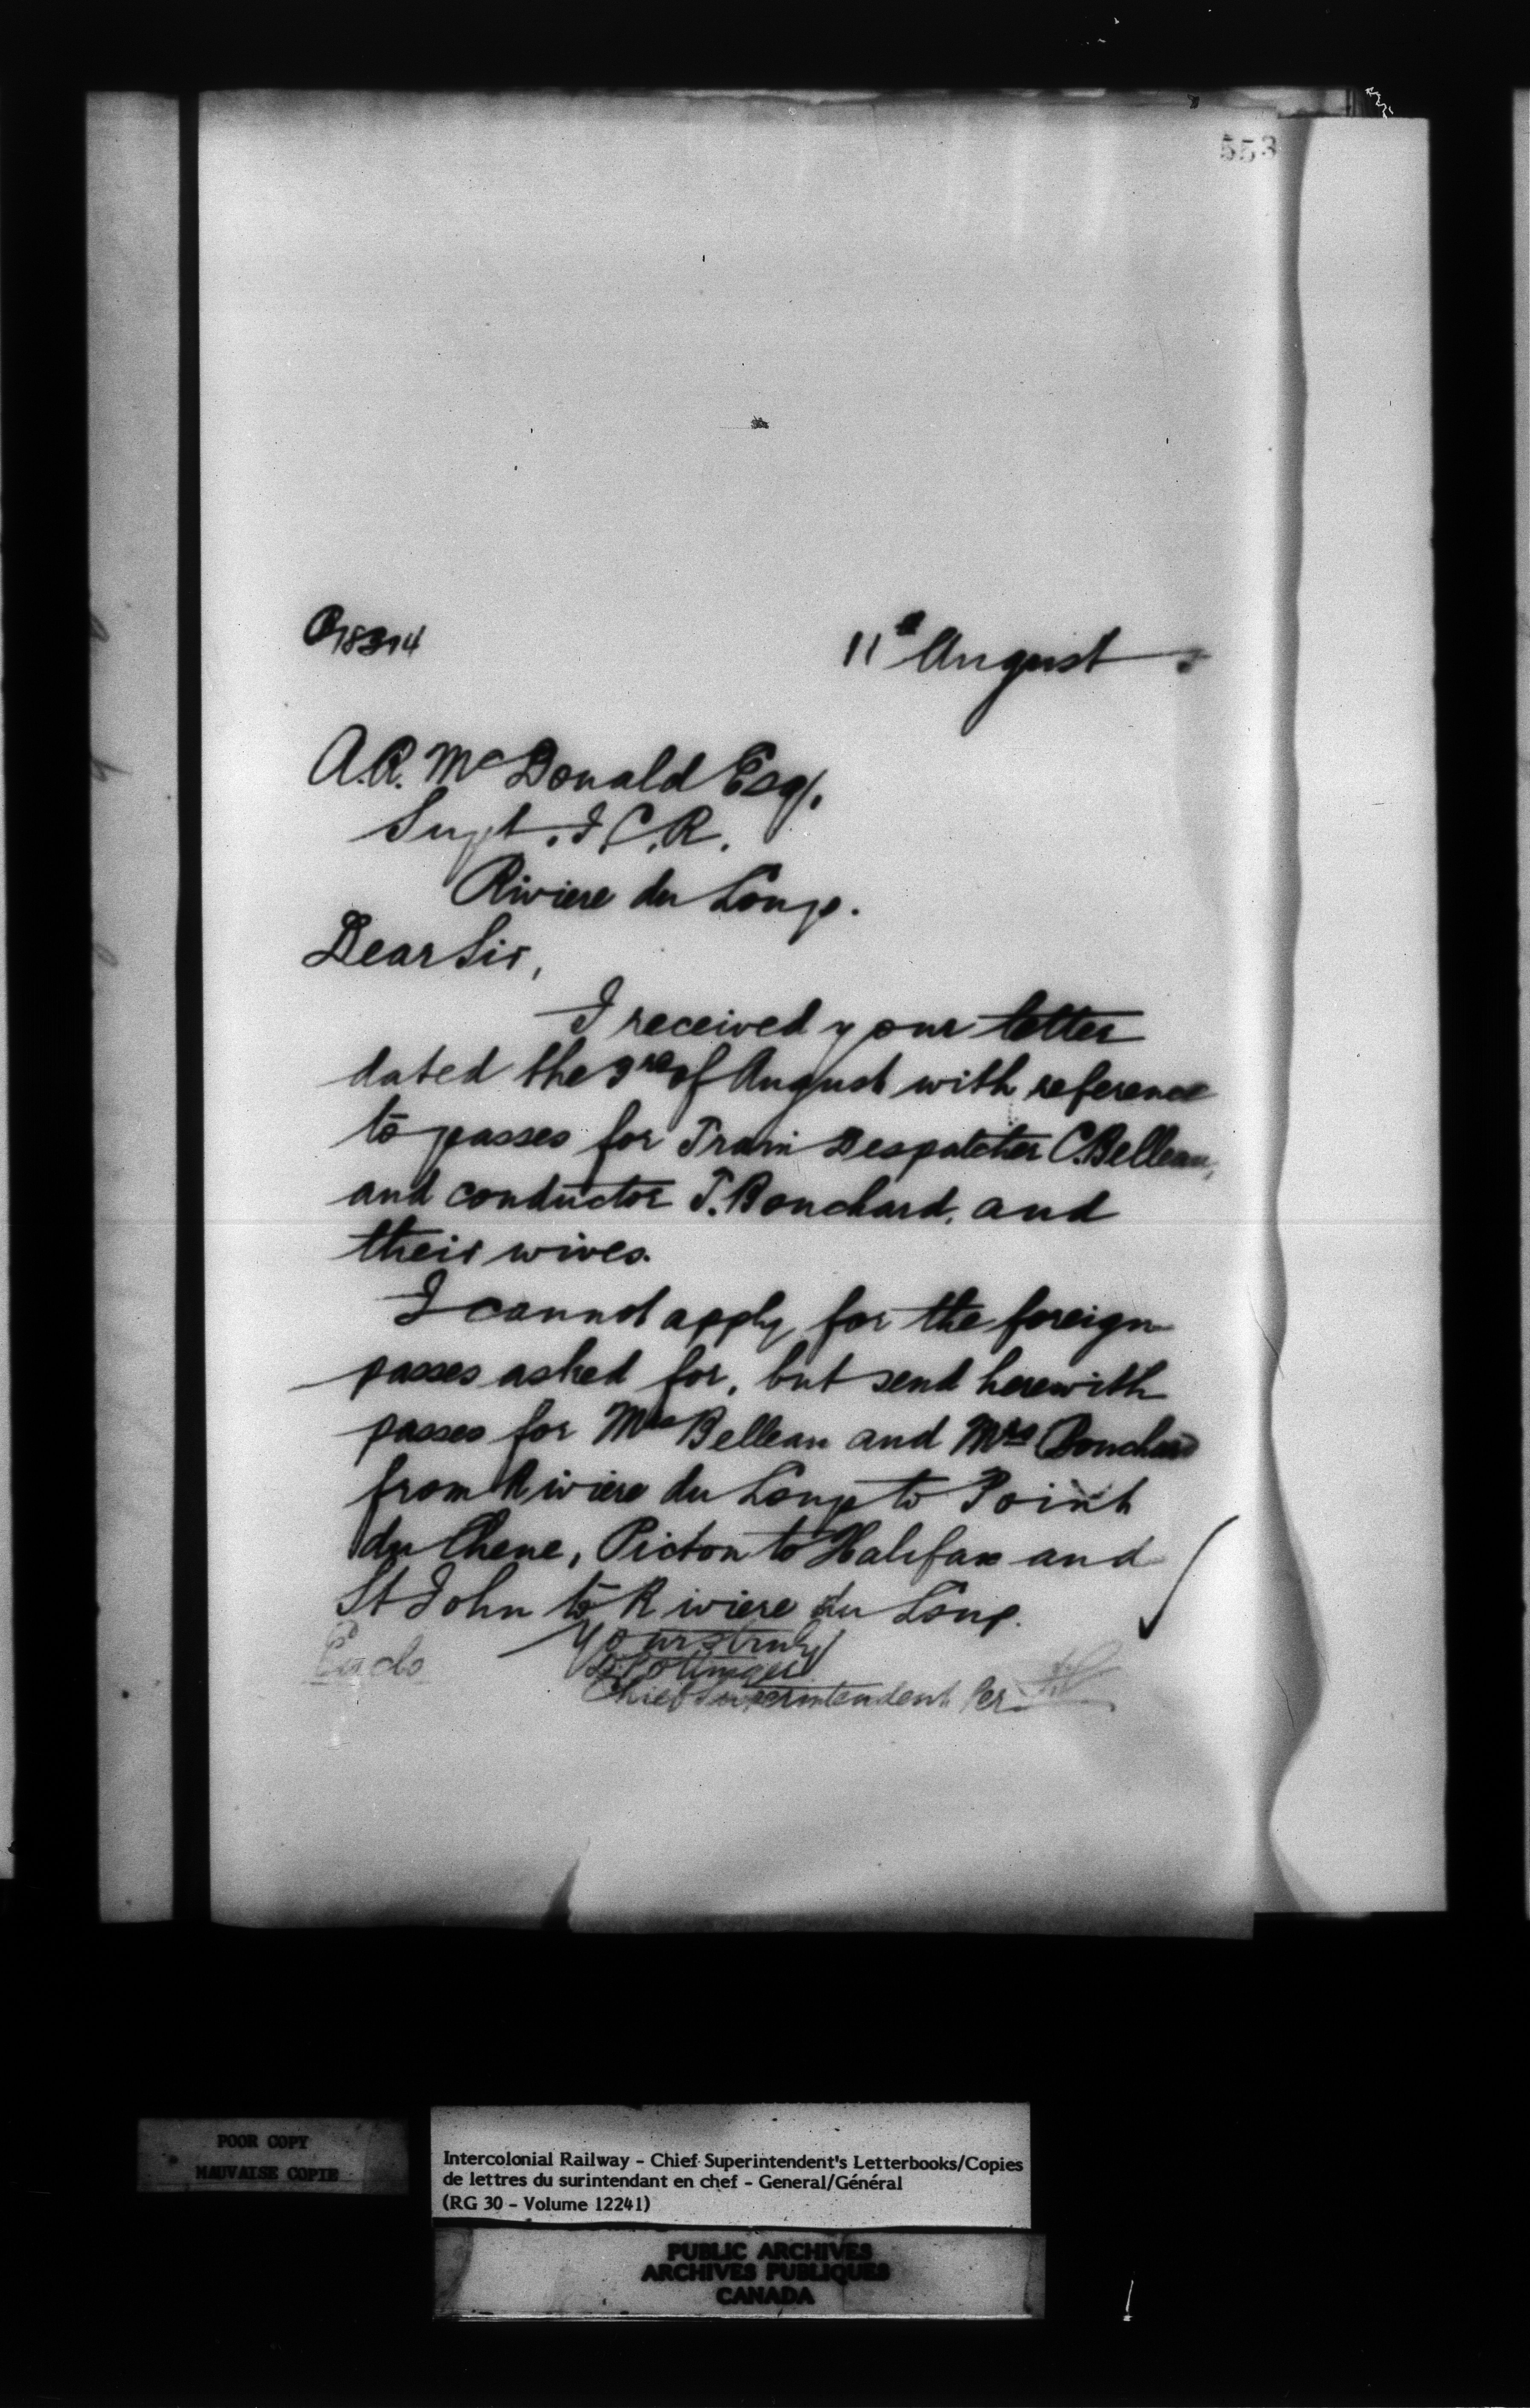 553
11th August
A.R. McDonald Esq.
Supt. I.C.R.
Riviere du Loup.
Dear Sir,
I received your letter
dated the 3rd of August with reference
to passes for Train Despatcher C. Belleau,
and conductor T. Bouchard, and
their wives.
I cannot apply for the foreign
passes asked for, but send herewith
passes for Mrs Belleau and Mrs Bouchard
from Riviere du Loup to Point
du Chene, Pictou to Halifax and
St John to Riviere du Loup.
Yours truly
D. Pottinger
Chief Superintendent Per
Enclo
POOR COPY
MAUVAISE COPIE
Intercolonial Railway - Chief Superintendent's Letterbooks/Copies
de lettres du surintendant en chef - General/Général
(RG 30 - Volume 12241)
PUBLIC ARCHIVES
ARCHIVES PUBLIQUES
CANADA